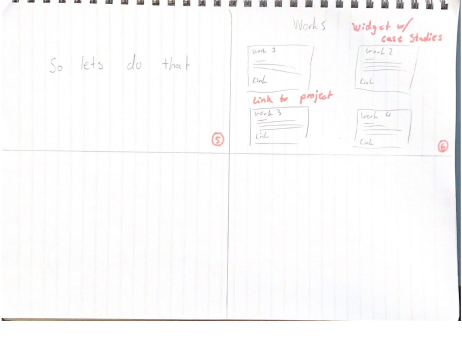 So lets do that
5
Works
widget w/
case studies
work 1
Link
work 2
Link
Link to project
work 3
Link
work 4
Link
6